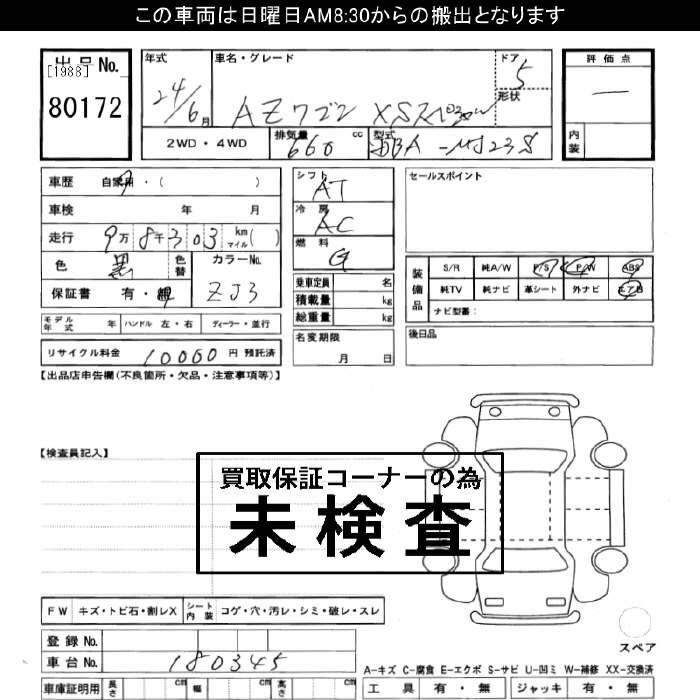 この車両は日曜日AM8:30からの搬出となります
出品No.
[1988]
80172
年式
24/6月
車名・グレード
AZワゴン XSスペシャル
ドア
5
形状
2WD・4WD
排気量
660
cc
型式
DBA-MJ23S
評価点
―
内装
車歴 自家用・( )
車検 年 月
走行 9万8千303 km マイル( )
色 黒 色替
カラーNo.
ZJ3
保証書 有・無
モデル年式 年 ハンドル 左・右 ディーラー・並行
リサイクル料金 10060 円 預託済
シフト
AT
冷房
AC
燃料
G
乗車定員 名
積載量 kg
総重量 kg
名変期限
月 日
セールスポイント
装備品
S/R 純A/W P/S P/W ABS
純TV 純ナビ 革シート 外ナビ エアB
ナビ型番:
後日品
【出品店申告欄(不良箇所・欠品・注意事項等)】
【検査員記入】
買取保証コーナーの為
未検査
FW キズ・トビ石・割レX シート内装 コゲ・穴・汚レ・シミ・破レ・スレ
登録No.
車台No. 180345
車庫証明用 長さ cm 幅 cm 高さ cm
スペア
A-キズ C-腐食 E-エクボ S-サビ U-凹ミ W-補修 XX-交換済
工具 有・無 ジャッキ 有・無